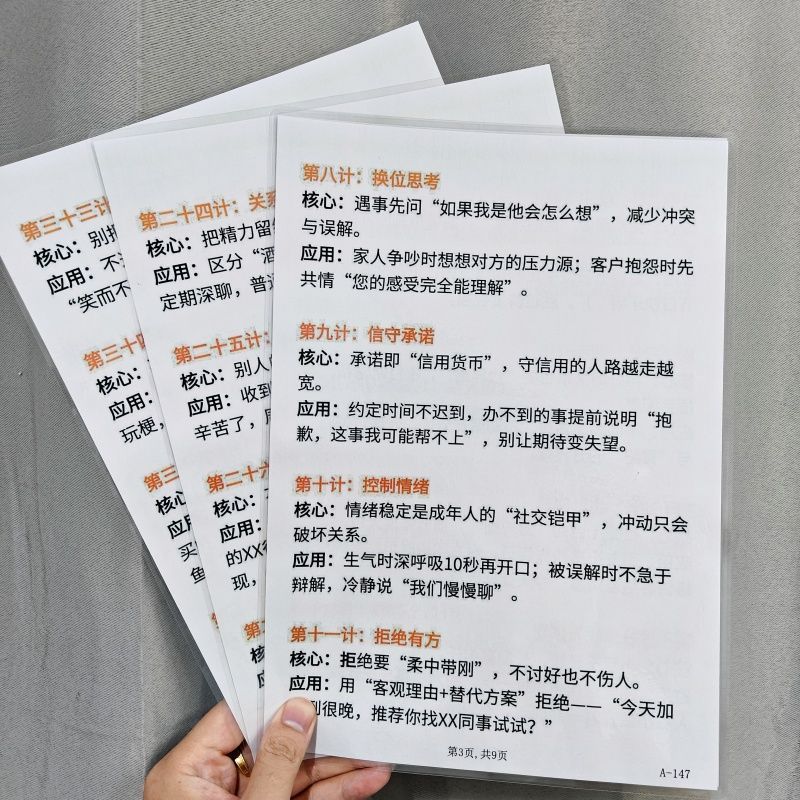 第八计：换位思考
核心：遇事先问“如果我是他会怎么想”，减少冲突
与误解。
应用：家人争吵时想想对方的压力源；客户抱怨时先
共情“您的感受完全能理解”。
第九计：信守承诺
核心：承诺即“信用货币”，守信用的人路越走越
宽。
应用：约定时间不迟到，办不到的事提前说明“抱
歉，这事我可能帮不上”，别让期待变失望。
第十计：控制情绪
核心：情绪稳定是成年人的“社交铠甲”，冲动只会
破坏关系。
应用：生气时深呼吸10秒再开口；被误解时不急于
辩解，冷静说“我们慢慢聊”。
第十一计：拒绝有方
核心：拒绝要“柔中带刚”，不讨好也不伤人。
应用：用“客观理由+替代方案”拒绝——“今天加
到很晚，推荐你找XX同事试试？”
第3页，共9页
A-147
第二十四计：关系
核心：把精力留
应用：区分“酒
定期深聊，普通
第二十五计：
核心：别人
应用：收到
辛苦了，
第二十六
核心：
应用：
的XX
现，
第二
核
应
第三十三计
核心：别把
应用：不
“笑而不
第三十四
核心：
应用：
玩梗，
第三
核心
应用
买
鱼